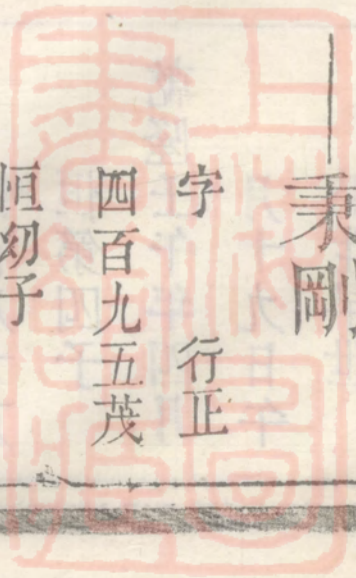 秉剛
字 行正
四百九五茂
恒幼子